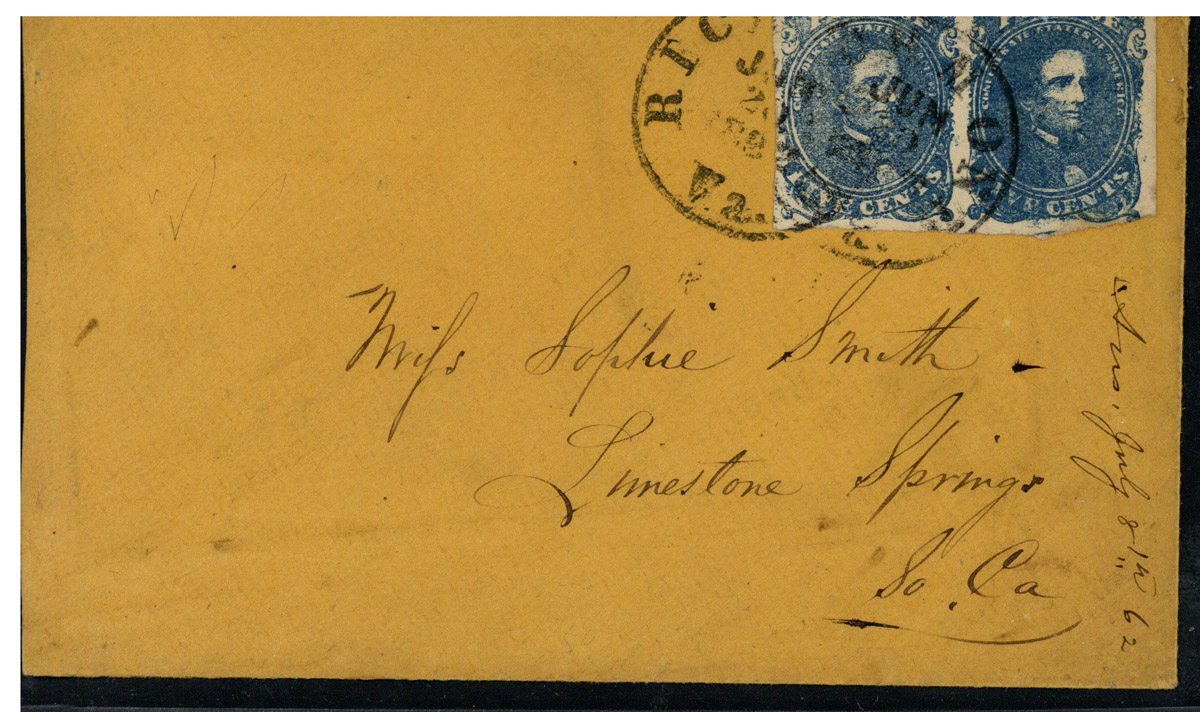 RICHMOND
Va.
JUN
CONFEDERATE STATES OF AMERICA
CENTS
JUN
CONFEDERATE STATES OF AMERICA
FIVE CENTS
Miss Sophie Smith
Limestone Springs
So. Ca
Ans. July 8th 62